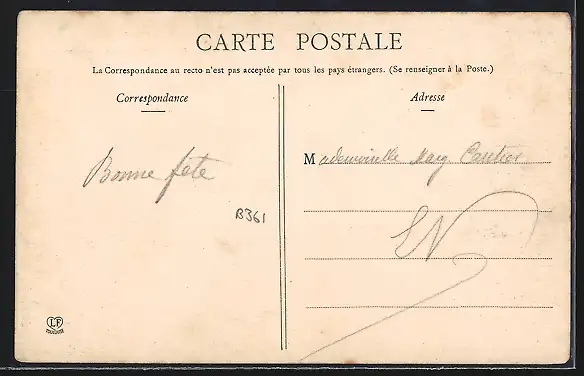 CARTE POSTALE
La Correspondance au recto n'est pas acceptée par tous les pays étrangers. (Se renseigner à la Poste.)
Correspondance
Bonne fête
B361
LF
Adresse
Mademoiselle Marg